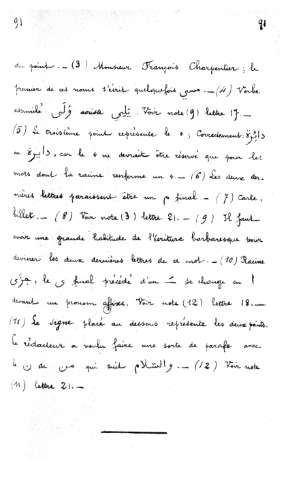 91 91
du point. — (3) Monsieur François Charpentier; le
premier de ces noms s'écrit quelquefois موسي. — (4) Verbe
assimilé وَلَّى يلي. Voir note (9) lettre 17. —
(5) Le troisième point représente le ة; Correctement دائرة
ou دايرة, car le ء ne devrait être réservé que pour les
mots dont la racine renferme un ء. — (6) Les deux der-
nières lettres paraissent être un م final. — (7) Carte,
billet. — (8) Voir note (3) lettre 21. — (9) Il faut
avoir une grande habitude de l'écriture barbaresque pour
deviner les deux dernières lettres de ce mot. — (10) Racine
جزى, le ى final précédé d'un َ se change en ا
devant un pronom affixe. Voir note (12) lettre 18. —
(11) Le signe placé au dessous représente les deux points.
Le rédacteur a voulu faire une sorte de parafe avec
le ن de من qui suit والسّلام. — (12) Voir note
(11) lettre 21. —